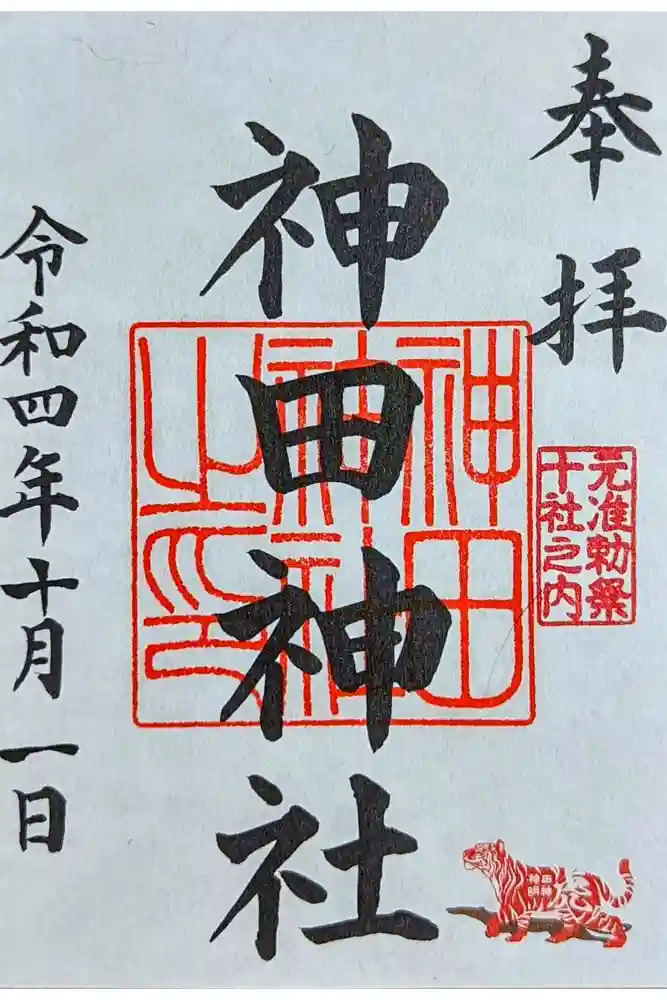 奉拝
元准勅祭
十社之内
神田神社
神田
神社
之印
令和四年十月一日
神田
神明